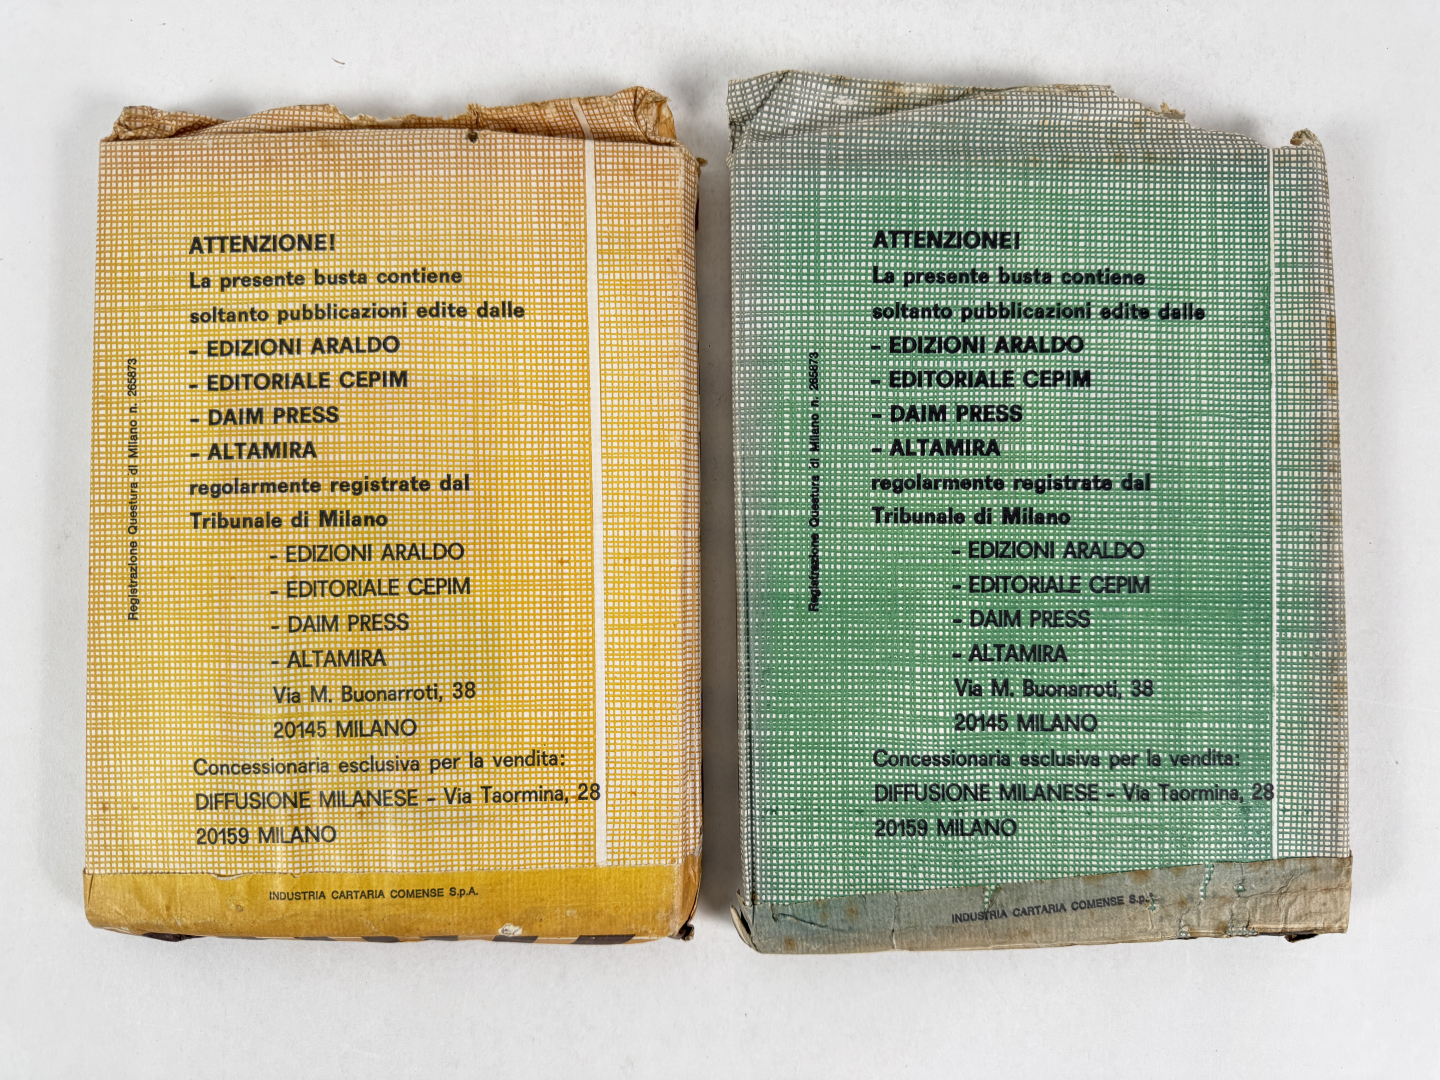 ATTENZIONE!
La presente busta contiene
soltanto pubblicazioni edite dalle
- EDIZIONI ARALDO
- EDITORIALE CEPIM
- DAIM PRESS
- ALTAMIRA
regolarmente registrate dal
Tribunale di Milano
- EDIZIONI ARALDO
- EDITORIALE CEPIM
- DAIM PRESS
- ALTAMIRA
Via M. Buonarroti, 38
20145 MILANO
Concessionaria esclusiva per la vendita:
DIFFUSIONE MILANESE - Via Taormina, 28
20159 MILANO
Registrazione Questura di Milano n. 265873
INDUSTRIA CARTARIA COMENSE S.p.A.
ATTENZIONE!
La presente busta contiene
soltanto pubblicazioni edite dalle
- EDIZIONI ARALDO
- EDITORIALE CEPIM
- DAIM PRESS
- ALTAMIRA
regolarmente registrate dal
Tribunale di Milano
- EDIZIONI ARALDO
- EDITORIALE CEPIM
- DAIM PRESS
- ALTAMIRA
Via M. Buonarroti, 38
20145 MILANO
Concessionaria esclusiva per la vendita:
DIFFUSIONE MILANESE - Via Taormina, 28
20159 MILANO
Registrazione Questura di Milano n. 265873
INDUSTRIA CARTARIA COMENSE S.p.A.